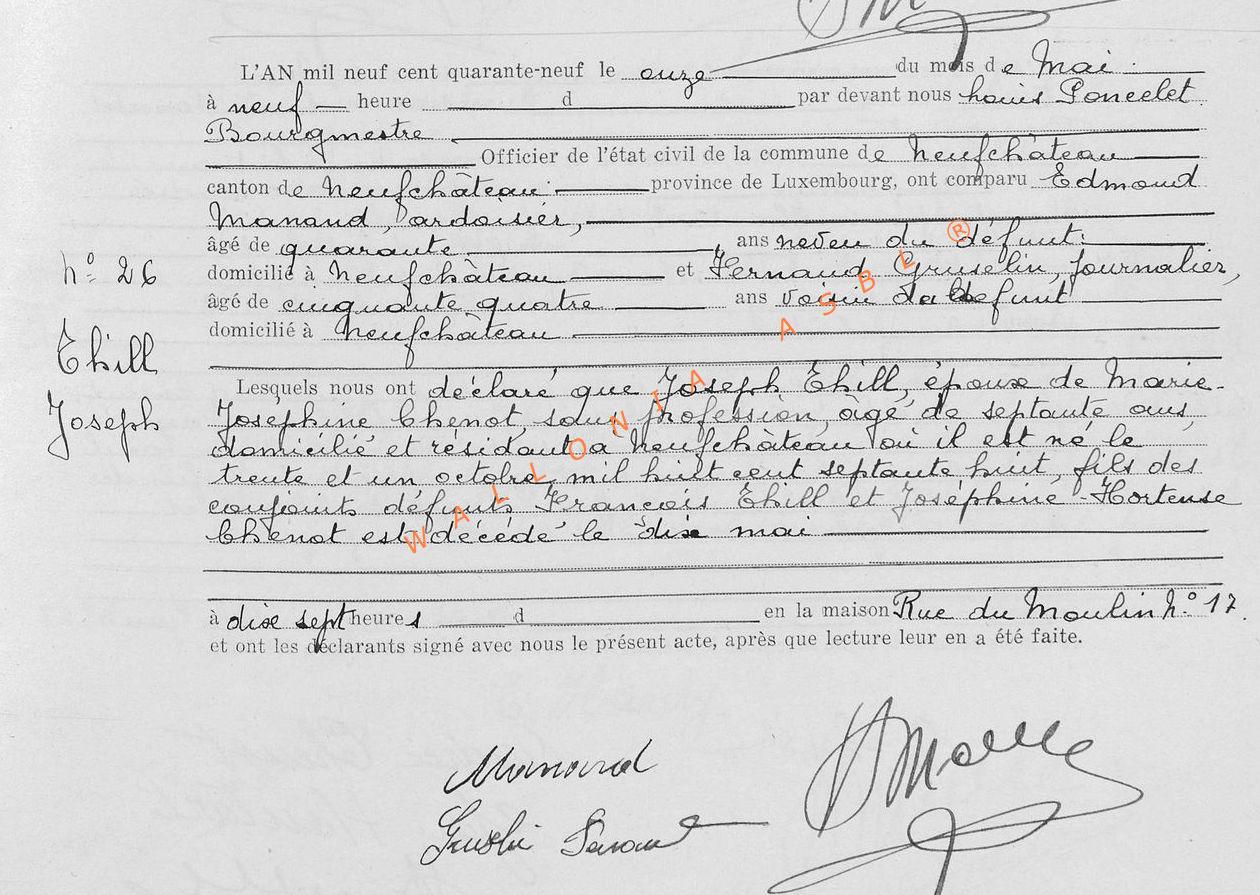 L'AN mil neuf cent quarante-neuf le onze du mois de Mai
à neuf heure d par devant nous Louis Poncelet
Bourgmestre
Officier de l'état civil de la commune de Neufchâteau
canton de Neufchâteau province de Luxembourg, ont comparu Edmond
Manand, ardoisier,
âgé de quarante ans neveu du défunt
domicilié à Neufchâteau et Fernand Gruselin, journalier,
âgé de cinquante quatre ans voisin défunt
domicilié à Neufchâteau
Lesquels nous ont déclaré que Joseph Thill, époux de Marie-
Josephine Chenot, sans profession, âgé de septante ans
domicilié et résidant à Neufchâteau où il est né le
trente et un octobre mil huit cent septante huit, fils des
conjoints défunts François Thill et Joséphine-Hortense
Chenot est décédé le dix mai
à dix sept heures d en la maison Rue du Moulin N° 17.
et ont les déclarants signé avec nous le présent acte, après que lecture leur en a été faite.
N° 26
Thill
Joseph
WALLONIA ASBL ®
Manand